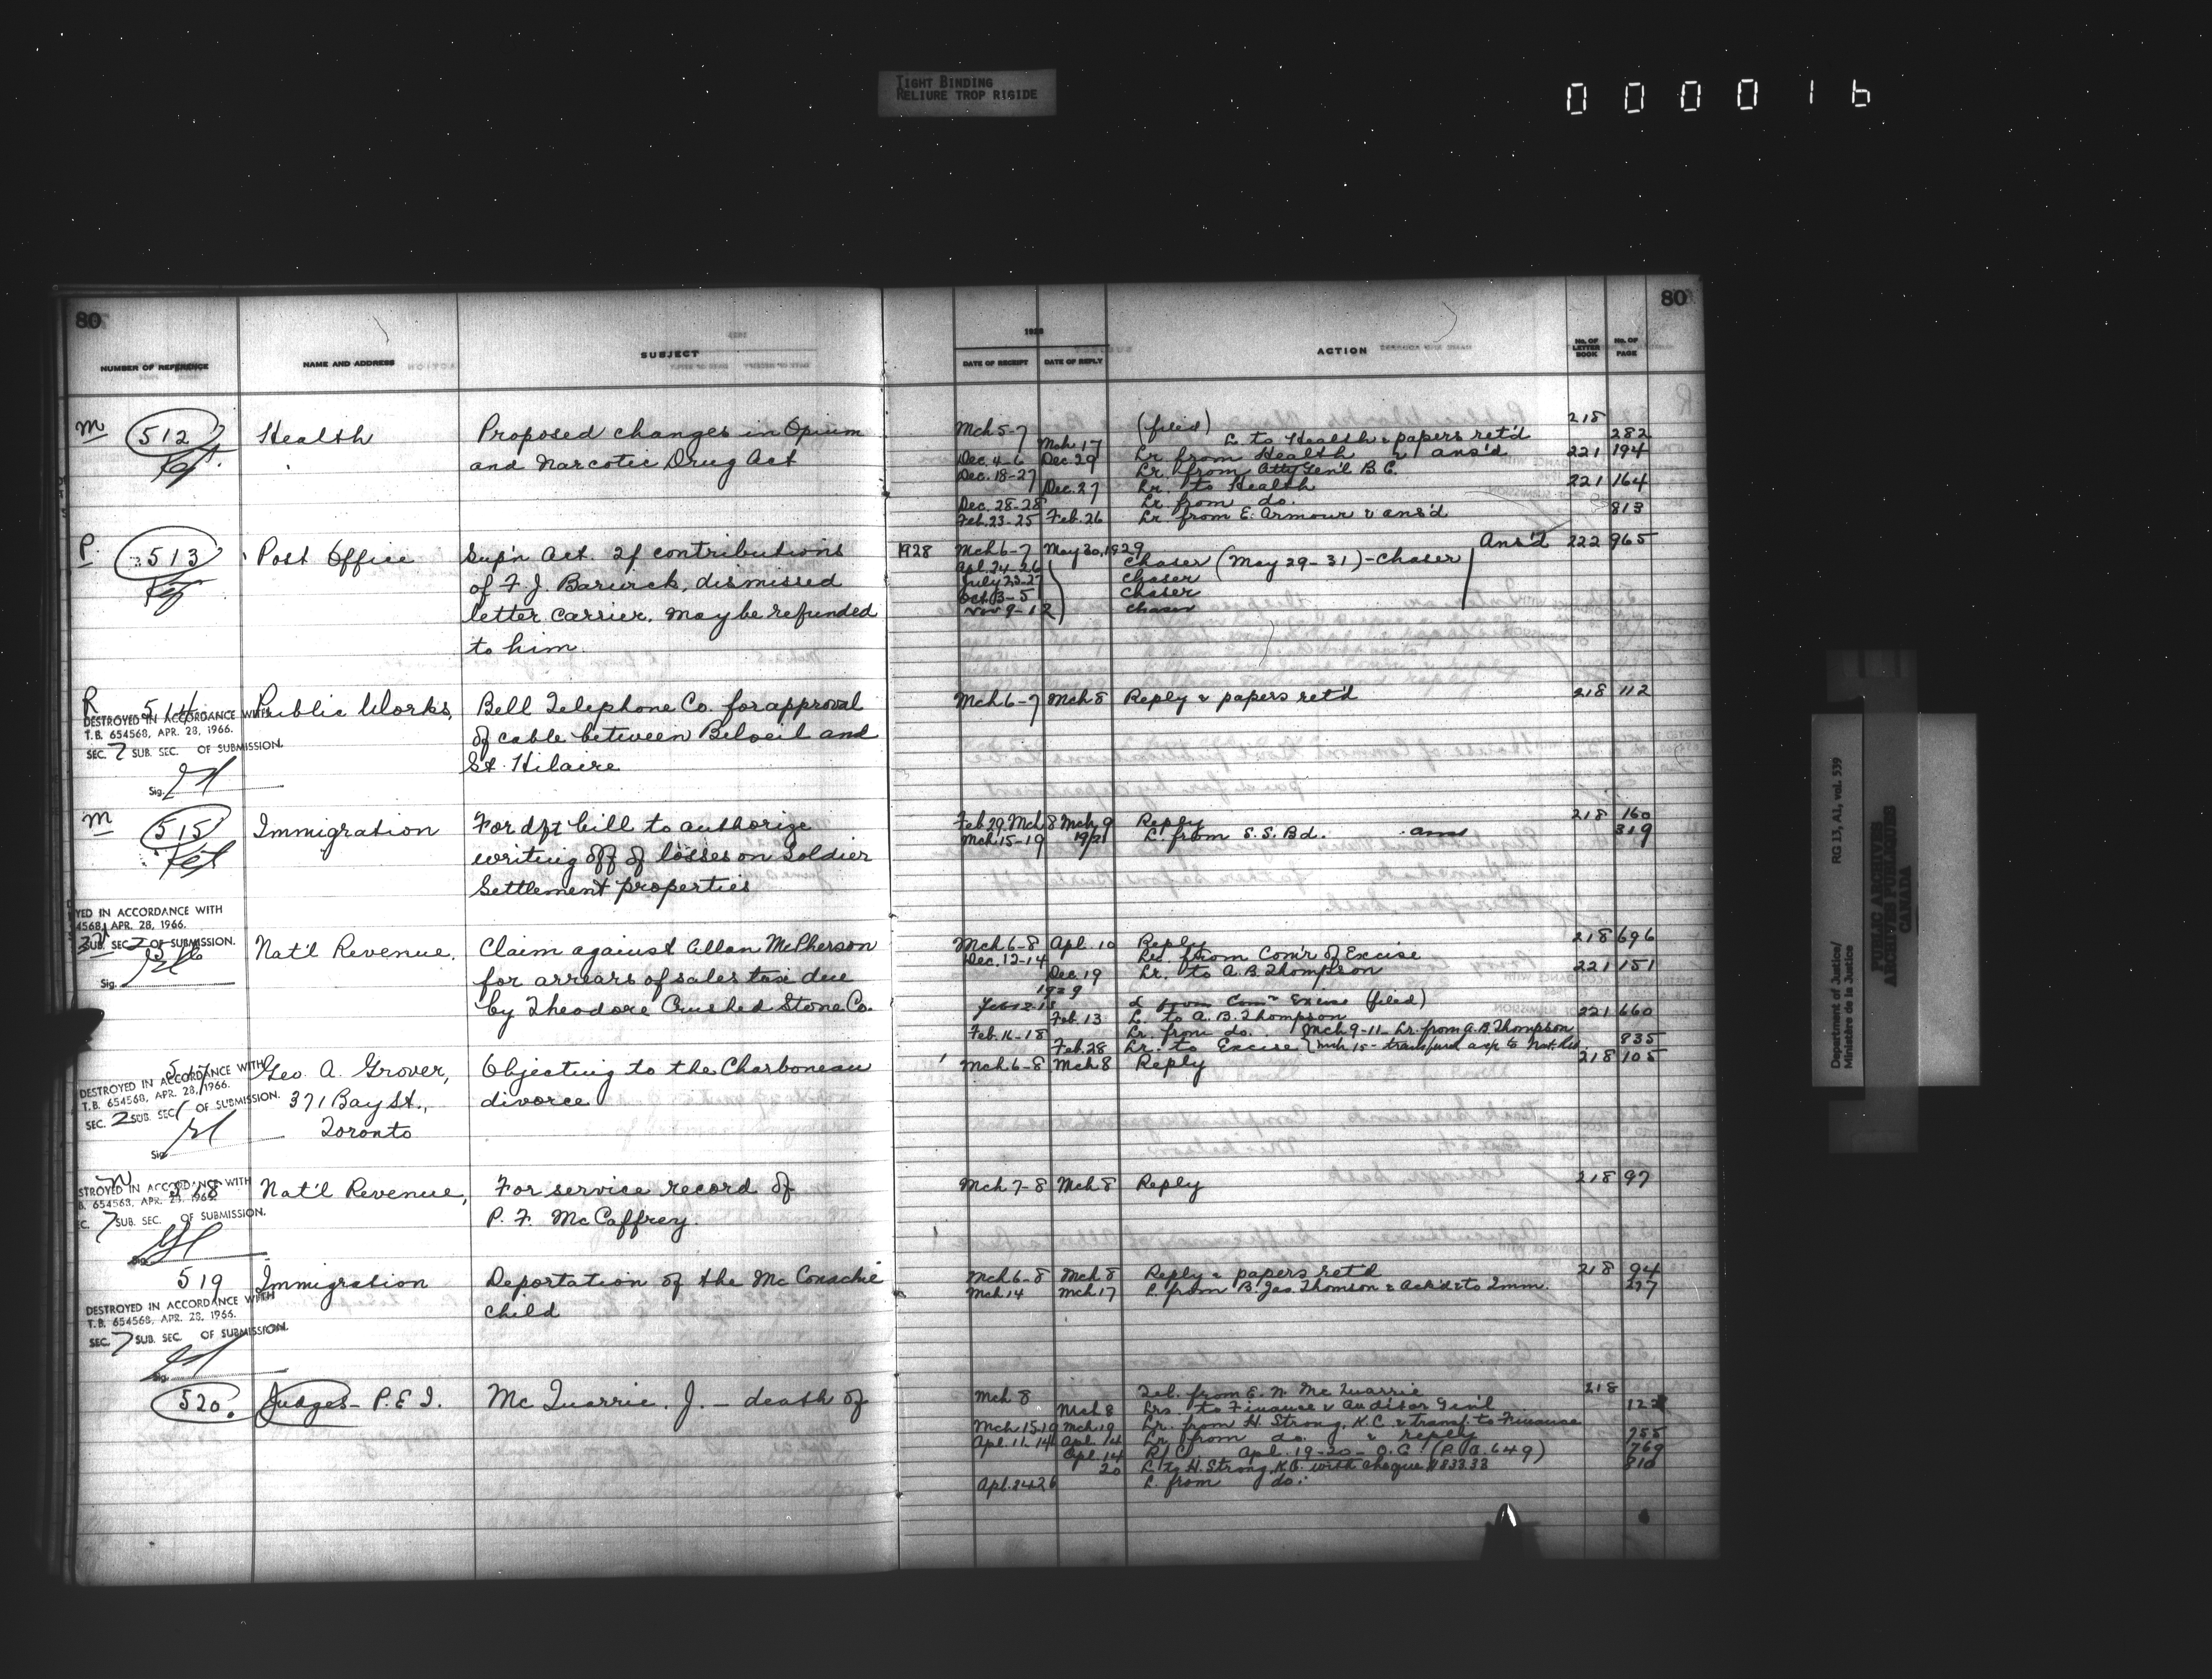 TIGHT BINDING
RELIURE TROP RIGIDE
000016
80
NUMBER OF REFERENCE NAME AND ADDRESS SUBJECT
1928
DATE OF RECEIPT DATE OF REPLY ACTION No. OF LETTER BOOK No. OF PAGE
80
M 512 Health Proposed changes in Opium
and Narcotic Drug Act
Mch 5-7 (filed) 218
Mch. 17 L. to Health & papers ret'd 282
Dec. 4-6 Dec. 29 Lr from Health & ans'd 221 194
Dec. 18-27 Lr. from Atty Gen'l B.C.
Dec. 27 Lr. to Health 221 164
Dec. 28-28 Lr from do.
Feb. 23-25 Feb. 26 Lr. from E. Armour & ans'd 813
P. 513 Post Office Sup'n Act. If contributions
of F. J. , dismissed
letter carrier, may be refunded
to him
1928 Mch 6-7 May 30, 1929 Ans'd 222 965
Apl. 24-26 Chaser (May 29-31) - Chaser
July 23-27 Chaser
Oct. 3-5 Chaser
Nov 9-12 Chaser
R 514 Public Works, Bell Telephone Co. for approval
of cable between Beloeil and
St. Hilaire
DESTROYED IN ACCORDANCE WITH
T.B. 654568, APR. 28, 1966.
SEC. 7 SUB. SEC. OF SUBMISSION.
Sig.
Mch 6-7 Mch 8 Reply & papers ret'd 218 112
M 515 Immigration For dft bill to authorize
writing off of losses on Soldier
Settlement properties
Feb 29. Mch 8 Mch 9 Reply 218 160
Mch 15-19 19/21 L. from S.S. Bd. ans 319
YED IN ACCORDANCE WITH
4568, APR. 28, 1966.
SUB. SEC. 2 OF SUBMISSION.
Sig.
516 Nat'l Revenue, Claim against Allan McPherson
for arrears of sales tax due
by Theodore Crushed Stone Co.
Mch 6-8 Apl. 10 Reply 218 696
Dec. 12-14 Lr. from Com'r of Excise
Dec. 19 Lr. to A. B. Thompson 221 151
1929
L from Com'r Excise (filed)
Feb. 13 L. to A. B. Thompson 221 660
Feb. 16-18 Lr. from do. Mch 9-11 Lr. from A.B. Thompson
Feb. 28 Lr. to Excise Mch 15 - to Nat. Rev. 935
517 Geo. A. Grover, Objecting to the Charboneau
371 Bay St., divorce
Toronto
DESTROYED IN ACCORDANCE WITH
T.B. 654568, APR. 28, 1966.
SEC. 2 SUB. SEC. 1 OF SUBMISSION.
Sig.
Mch 6-8 Mch 8 Reply 218 105
518 Nat'l Revenue, For service record of
P. F. McCaffrey.
STROYED IN ACCORDANCE WITH
B. 654568, APR. 28, 1966.
C. 7 SUB. SEC. OF SUBMISSION.
Mch 7-8 Mch 8 Reply 218 97
519 Immigration Deportation of the McConachie
child
DESTROYED IN ACCORDANCE WITH
T.B. 654568, APR. 28, 1966.
SEC. 7 SUB. SEC. OF SUBMISSION.
Mch 6-8 Mch 8 Reply & papers ret'd 218 94
Mch 14 Mch 17 L. from B. Jas. Thomson & ack'd & to Imm. 277
520. Judges - P.E.I. McQuarrie, J. - death of
Mch 8 Tel. from E. N. McQuarrie 218
Mch 8 Lrs. to Finance & Auditor Gen'l 122
Mch 15.19 Mch 19 Lr. from H. Strong, K.C. & transf. to Finance
Apl. 11-14 Apl. 14 Lr from do. & reply 755
Apl. 14 R/C Apl. 19-20 - O.C. (P.C. 649) 769
20 L. to H. Strong, K.C. with cheque $833.33 810
Apl. 24-26 L. from do.
Department of Justice/ RG 13, A1, vol. 539
Ministère de la Justice
PUBLIC ARCHIVES
ARCHIVES PUBLIQUES
CANADA